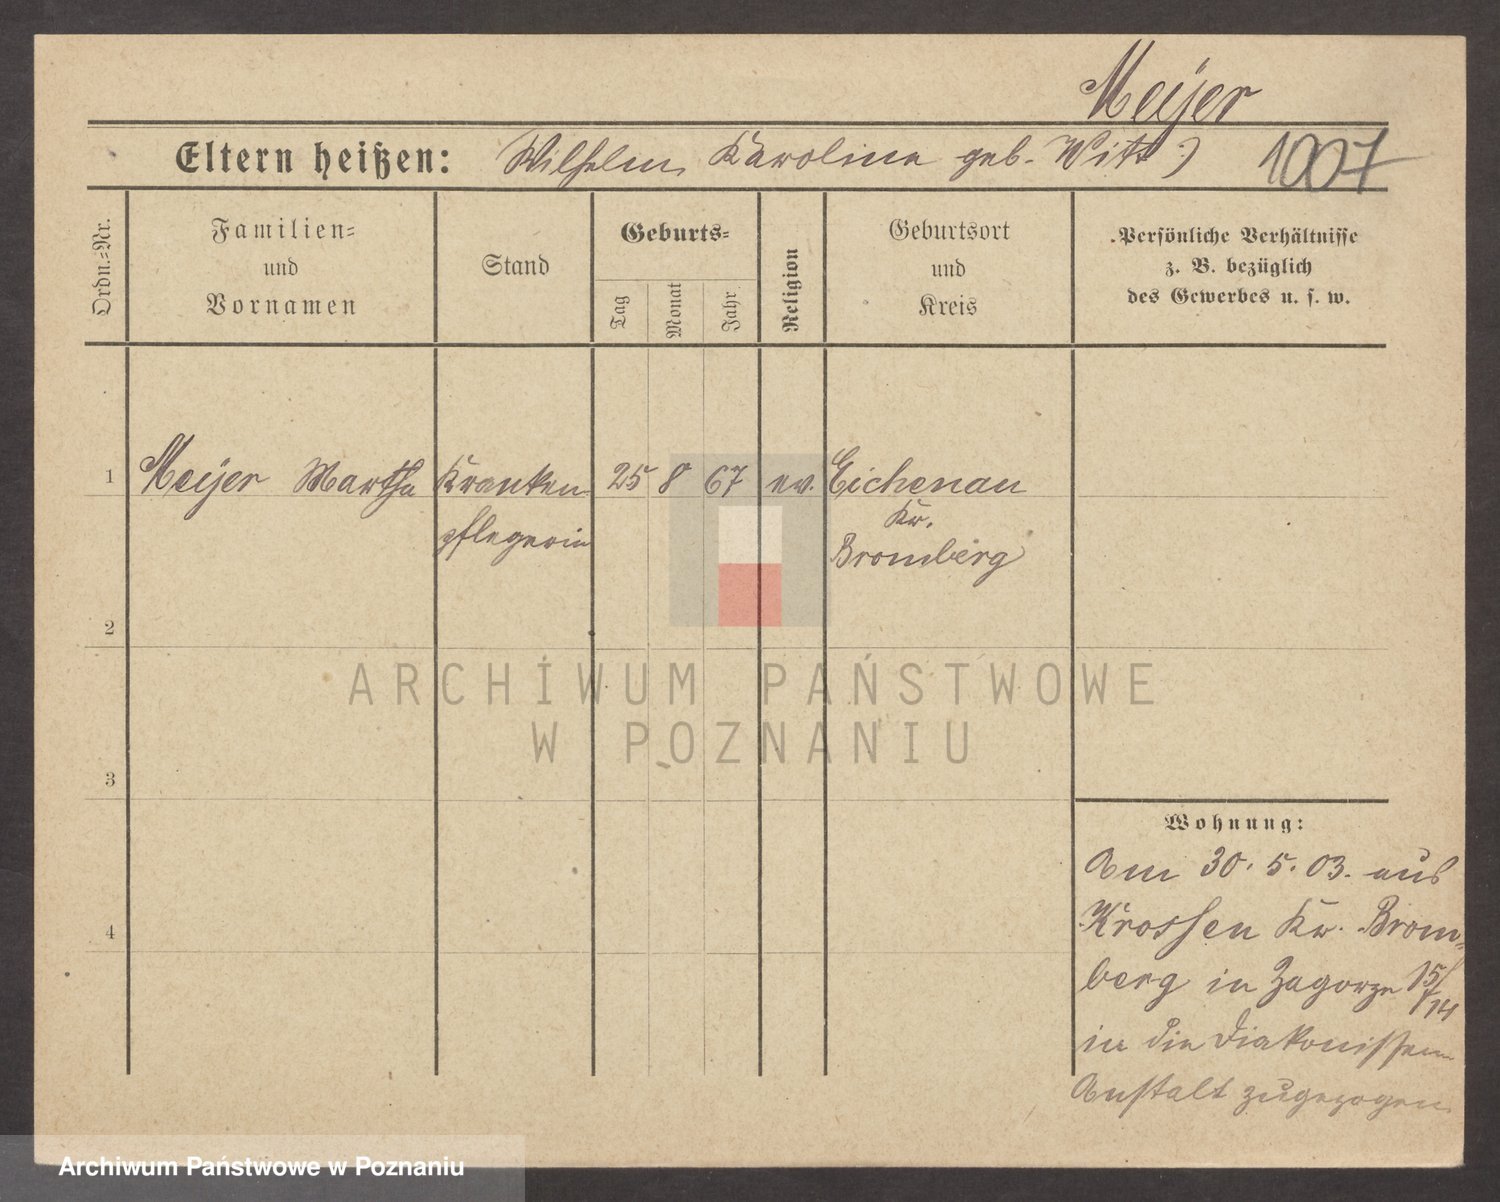 Meijer
Eltern heißen: Wilhelm, Karolina geb. Witt :)
1007
Ordn.-Nr.
Familien-
und
Vornamen
Stand
Geburts-
Tag
Monat
Jahr
Religion
Geburtsort
und
Kreis
Persönliche Verhältnisse
z. B. bezüglich
des Gewerbes u. s. w.
1 Meijer Martha Kranken- 25 8 67 ev. Eichenau
pflegerin
Kr.
Bromberg
2
3
4
ARCHIWUM PAŃSTWOWE
W POZNANIU
Wohnung:
Am 30. 5. 03. aus
Krossen Kr. Brom-
berg in Zagorze 15/
14
in die Diakonissen
Anstalt zugezogen
Archiwum Państwowe w Poznaniu